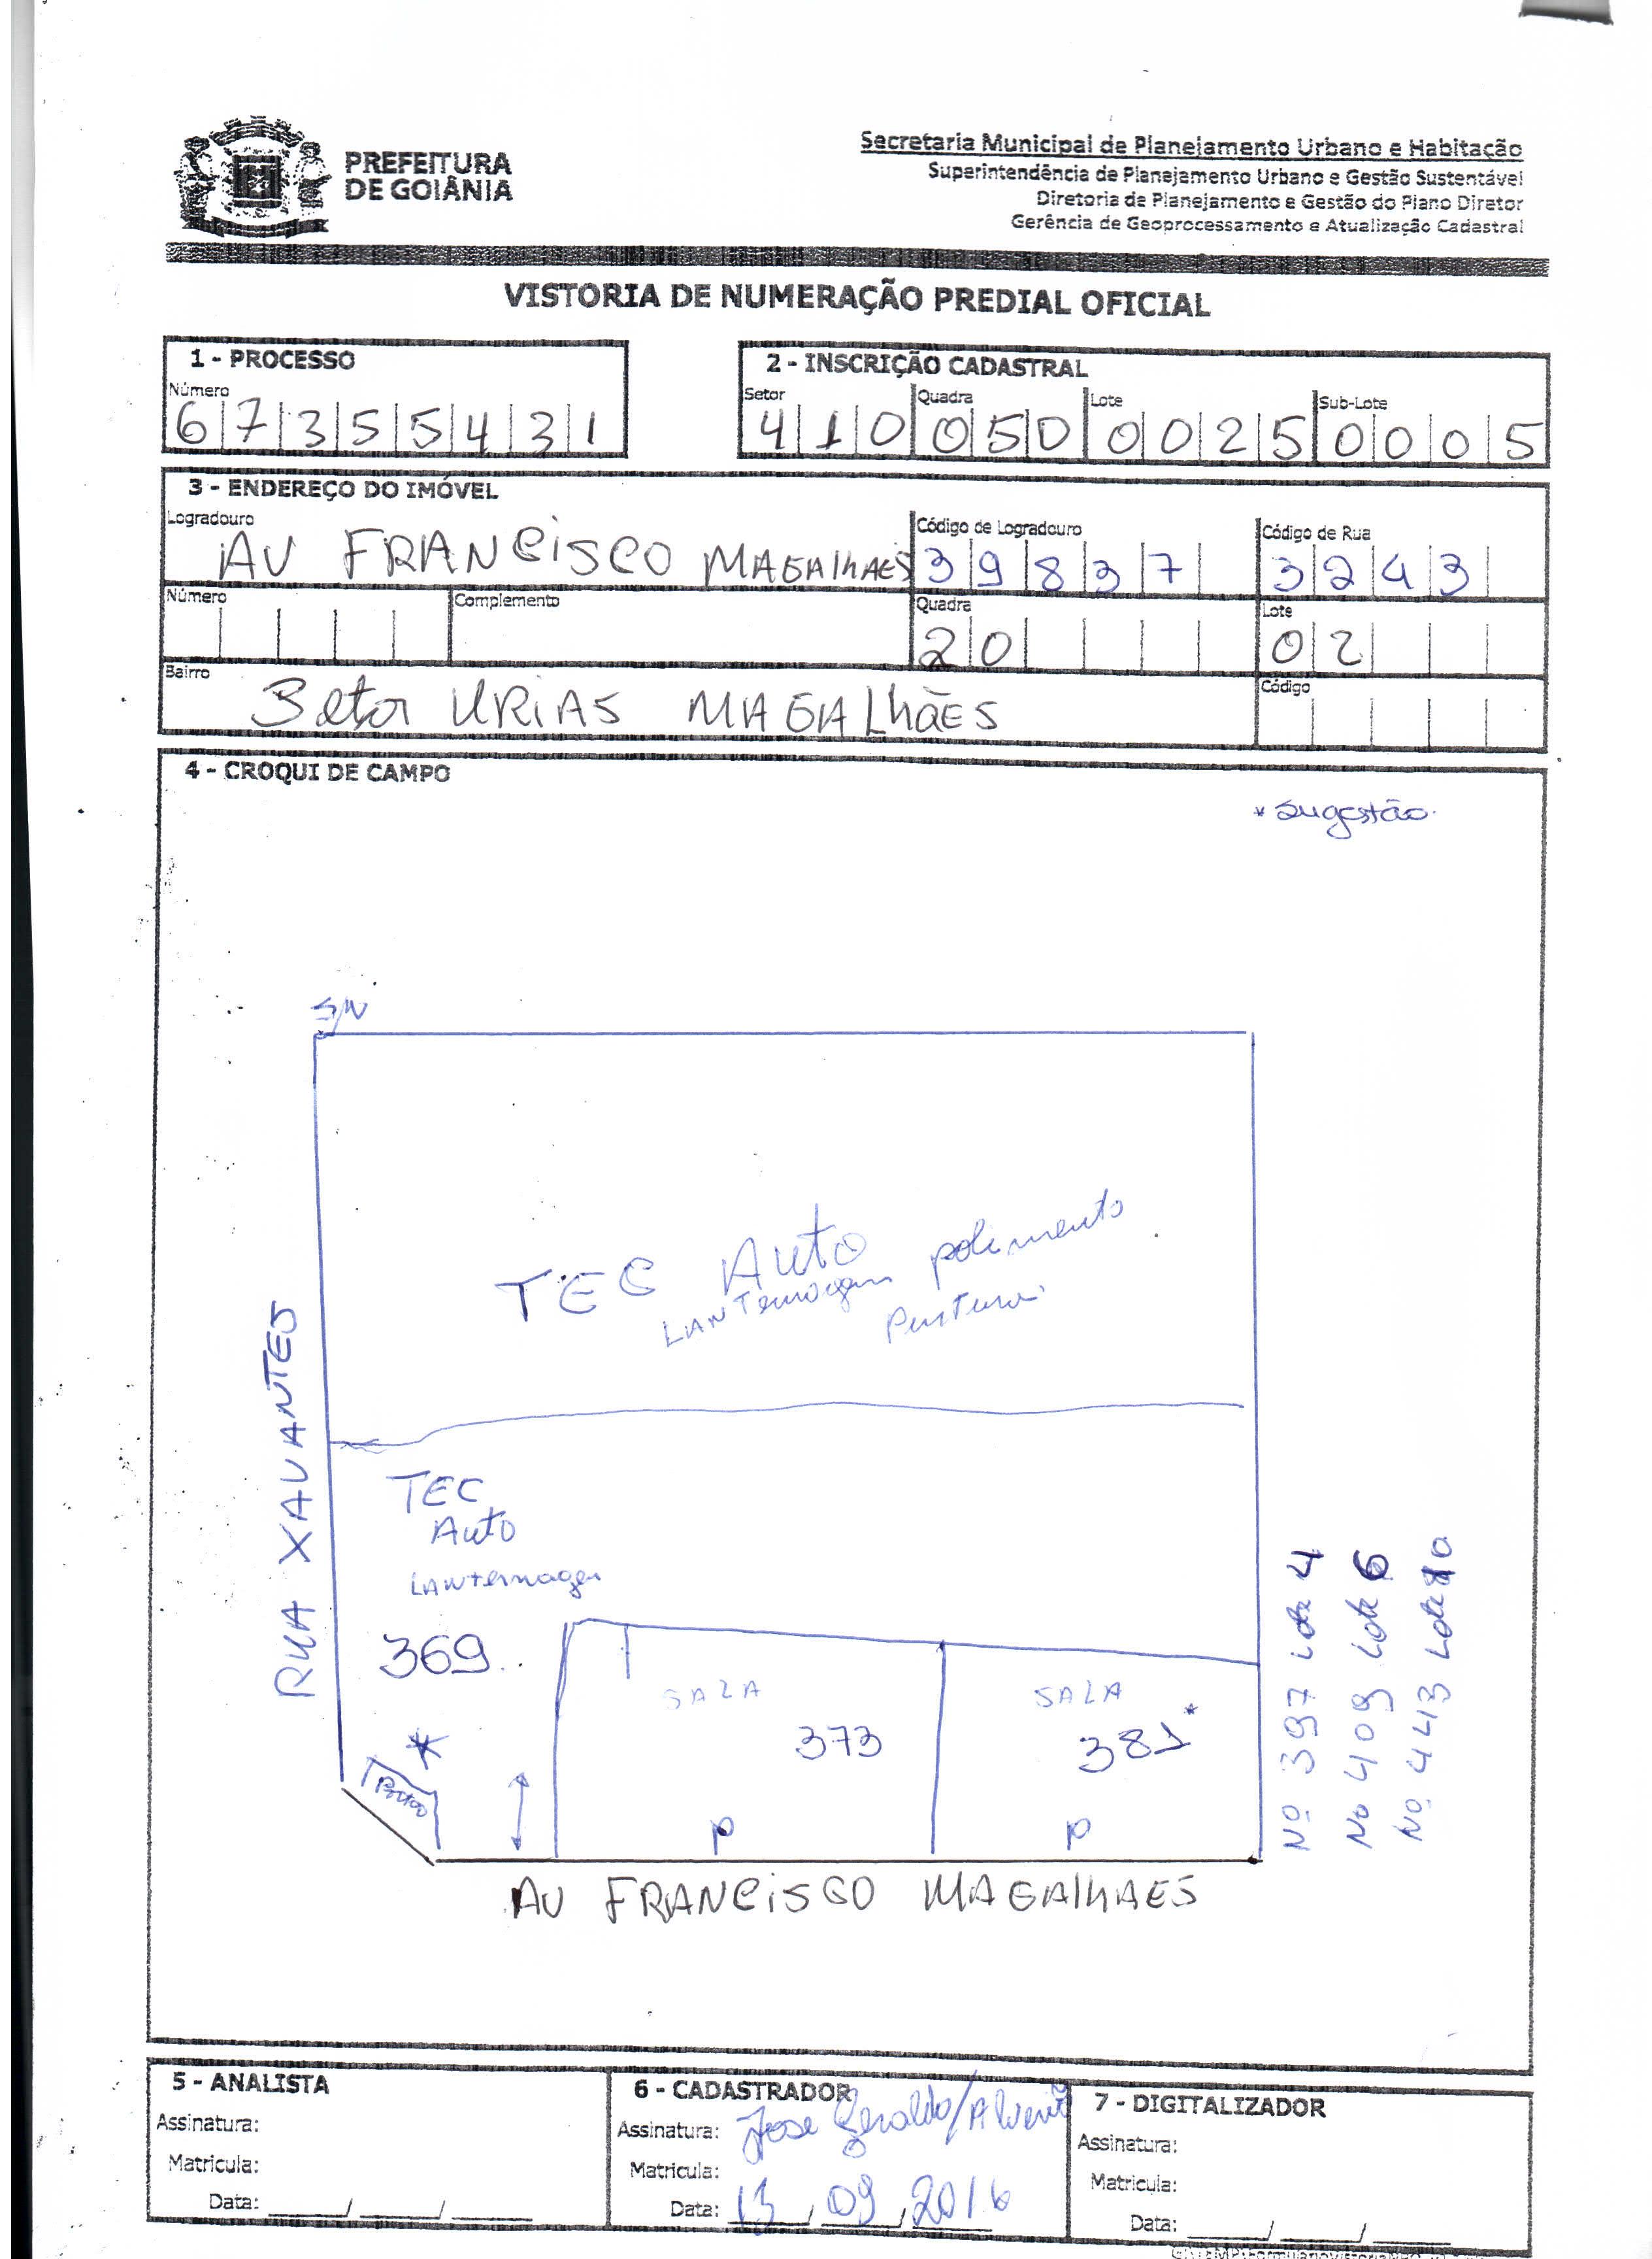 PREFEITURA
DE GOIÂNIA
Secretaria Municipal de Planejamento Urbano e Habitação
Superintendência de Planejamento Urbano e Gestão Sustentável
Diretoria de Planejamento e Gestão do Plano Diretor
Gerência de Geoprocessamento e Atualização Cadastral
VISTORIA DE NUMERAÇÃO PREDIAL OFICIAL
1 - PROCESSO
Número
67355431
2 - INSCRIÇÃO CADASTRAL
Setor Quadra Lote Sub-Lote
410 050 0025 0005
3 - ENDEREÇO DO IMÓVEL
Logradouro Código de Logradouro Código de Rua
AV FRANCISCO MAGALHAES 39837 3243
Número Complemento Quadra Lote
20 02
Bairro Código
Setor URIAS MAGALhãES
4 - CROQUI DE CAMPO
* sugestão
S/N
TEC Auto polimento
LANTernagem Pintura
RUA XAVANTES
TEC
Auto
LANternagem
369
SALA SALA
373 381*
*
P P
AV FRANCISCO MAGALHAES
Nº 397 Lote 4
Nº 409 Lote 6
Nº 443 Lote
5 - ANALISTA
Assinatura:
Matricula:
Data: ____/____/____
6 - CADASTRADOR
Assinatura: Jose Geraldo/
Matricula:
Data: 13/09/2016
7 - DIGITALIZADOR
Assinatura:
Matricula:
Data: ____/____/____